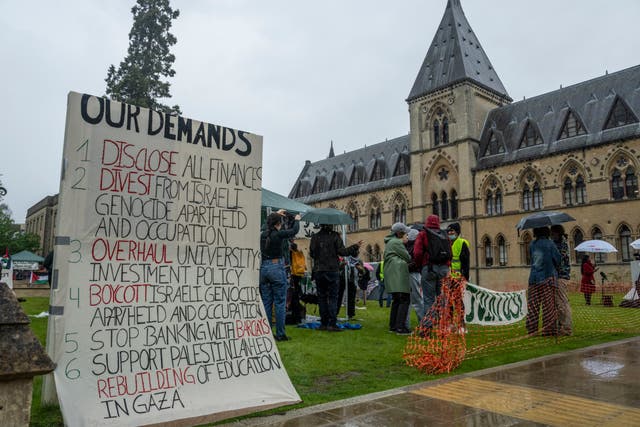 OUR DEMANDS
1 DISCLOSE ALL FINANCES
2 DIVEST FROM ISRAELI
GENOCIDE APARTHEID
AND OCCUPATION
3. OVERHAUL UNIVERSITY
INVESTMENT POLICY
4 BOYCOTT ISRAELI GENOCIDE,
APARTHEID AND OCCUPATION
5 STOP BANKING WITH BARCLAYS
6 SUPPORT PALESTINIAN LED
REBUILDING OF EDUCATION
IN GAZA